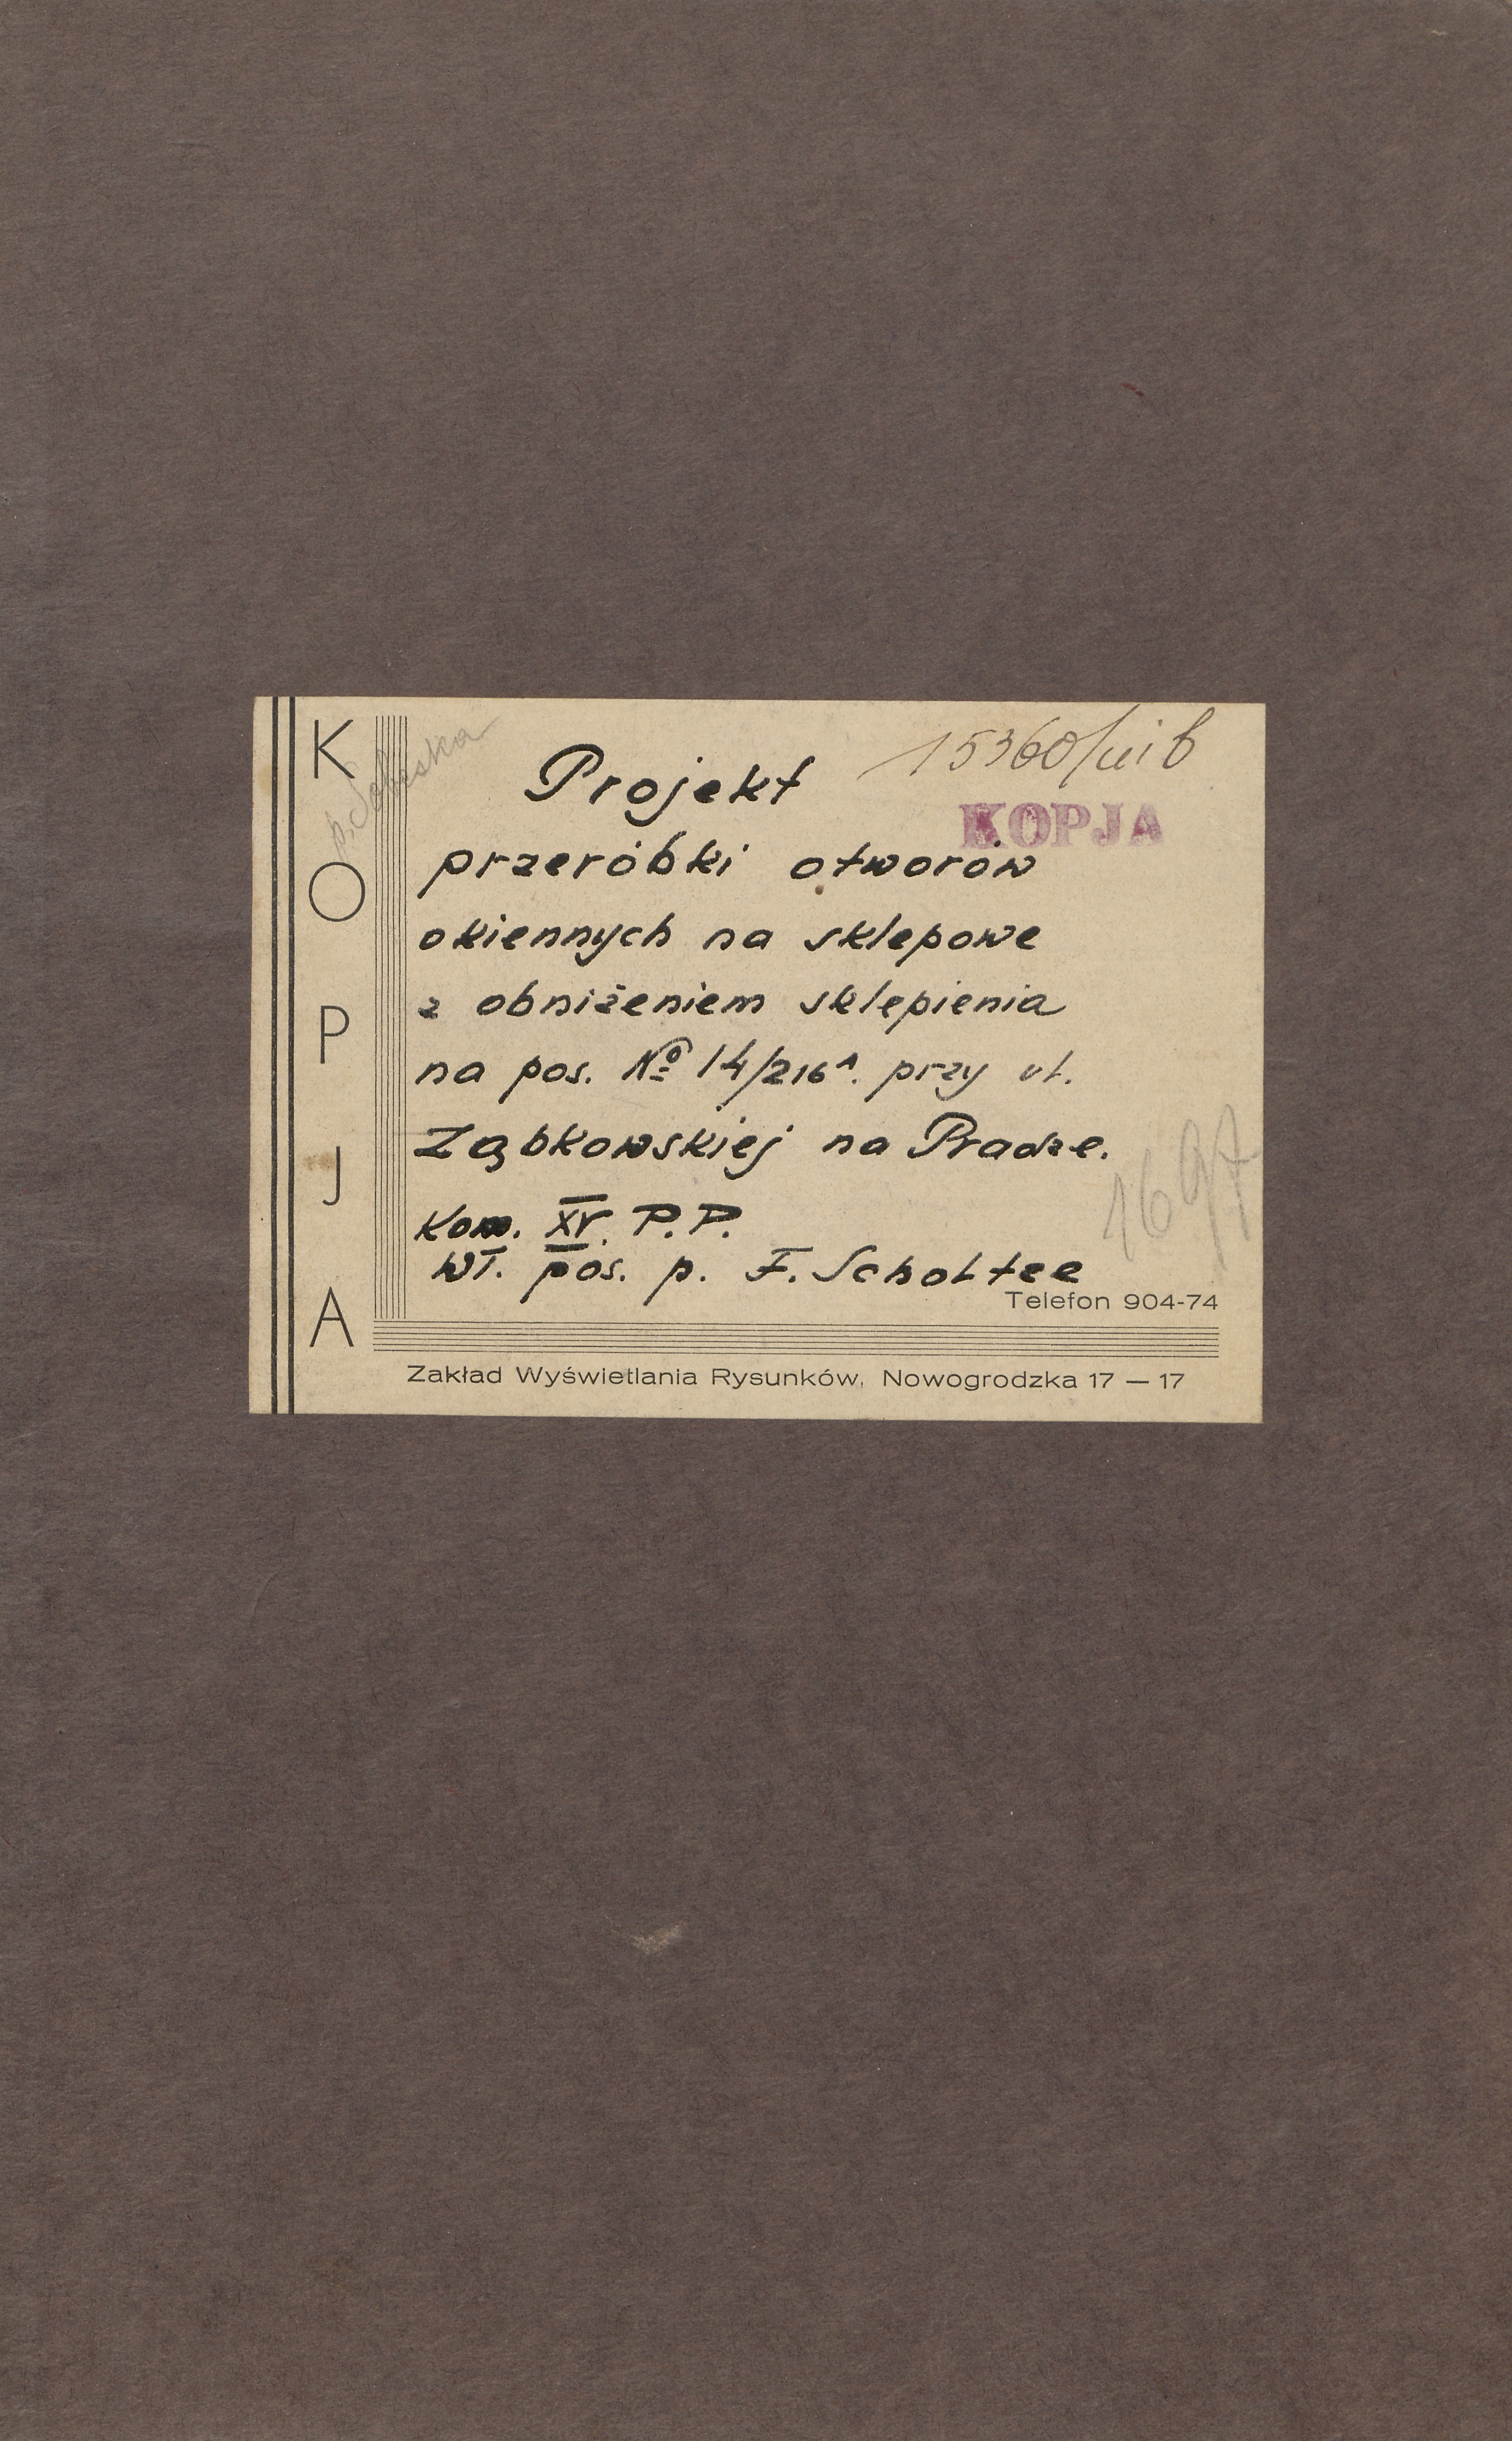 KOPJA
15360/
Projekt
KOPJA
przeróbki otworów
okiennych na sklepowe
z obniżeniem sklepienia
na pos. № 14/216ᴬ. przy ul.
Ząbkowskiej na Pradze.
1697
Kom. XV. P.P.
wł. pos. p. F. Scholtee
Telefon 904-74
Zakład Wyświetlania Rysunków, Nowogrodzka 17 — 17